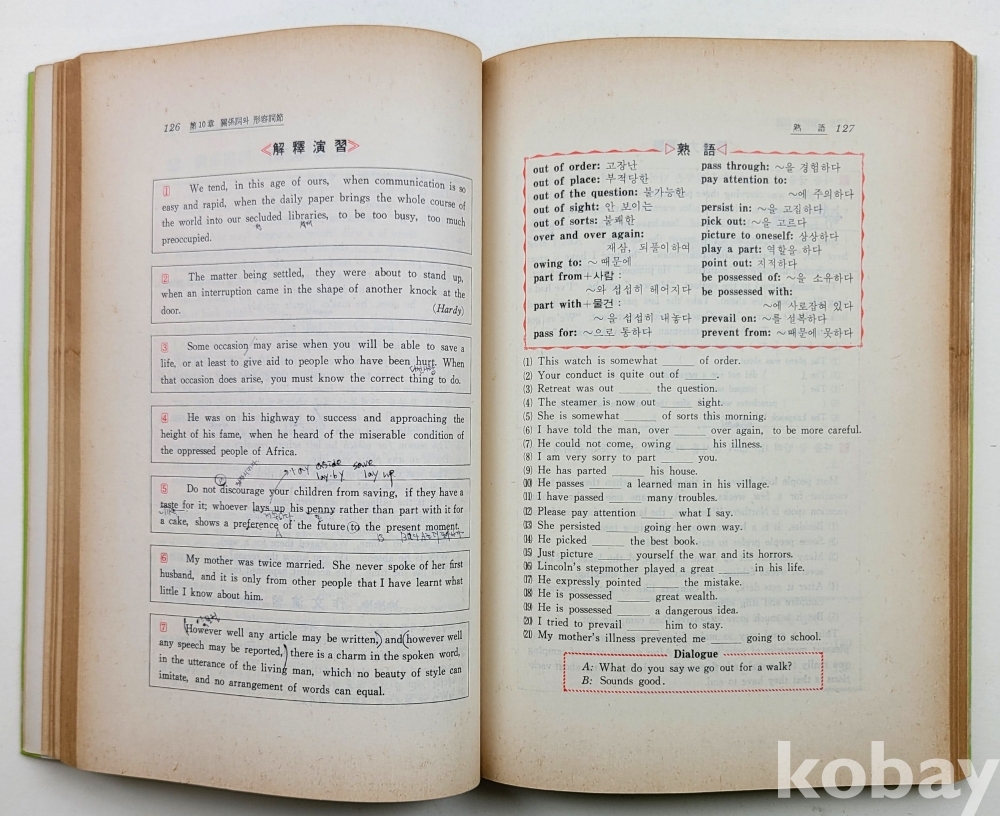 126 第10章 關係詞와 形容詞節
《解釋演習》
① We tend, in this age of ours, when communication is so
easy and rapid, when the daily paper brings the whole course of
the world into our secluded libraries, to be too busy, too much
preoccupied.
② The matter being settled, they were about to stand up,
when an interruption came in the shape of another knock at the
door. (Hardy)
③ Some occasion may arise when you will be able to save a
life, or at least to give aid to people who have been hurt. When
that occasion does arise, you must know the correct thing to do.
④ He was on his highway to success and approaching the
height of his fame, when he heard of the miserable condition of
the oppressed people of Africa.
lay aside save
lay-by lay up
⑤ Do not discourage your children from saving, if they have a
taste for it; whoever lays up his penny rather than part with it for
a cake, shows a preference of the future (to) the present moment.
A B
⑥ My mother was twice married. She never spoke of her first
husband, and it is only from other people that I have learnt what
little I know about him.
⑦ However well any article may be written, and however well
any speech may be reported, there is a charm in the spoken word,
in the utterance of the living man, which no beauty of style can
imitate, and no arrangement of words can equal.
熟 語 127
▷熟 語◁
out of order: 고장난
out of place: 부적당한
out of the question: 불가능한
out of sight: 안 보이는
out of sorts: 불쾌한
over and over again:
재삼, 되풀이하여
owing to: ～때문에
part from+사람:
～와 섭섭히 헤어지다
part with+물건:
～을 섭섭히 내놓다
pass for: ～으로 통하다
pass through: ～을 경험하다
pay attention to:
～에 주의하다
persist in: ～을 고집하다
pick out: ～을 고르다
picture to oneself: 상상하다
play a part: 역할을 하다
point out: 지적하다
be possessed of: ～을 소유하다
be possessed with:
～에 사로잡혀 있다
prevail on: ～를 설복하다
prevent from: ～때문에 못하다
(1) This watch is somewhat ____ of order.
(2) Your conduct is quite out of ____.
(3) Retreat was out ____ the question.
(4) The steamer is now out ____ sight.
(5) She is somewhat ____ of sorts this morning.
(6) I have told the man, over ____ over again, to be more careful.
(7) He could not come, owing ____ his illness.
(8) I am very sorry to part ____ you.
(9) He has parted ____ his house.
(10) He passes ____ a learned man in his village.
(11) I have passed ____ many troubles.
(12) Please pay attention ____ what I say.
(13) She persisted ____ going her own way.
(14) He picked ____ the best book.
(15) Just picture ____ yourself the war and its horrors.
(16) Lincoln's stepmother played a great ____ in his life.
(17) He expressly pointed ____ the mistake.
(18) He is possessed ____ great wealth.
(19) He is possessed ____ a dangerous idea.
(20) I tried to prevail ____ him to stay.
(21) My mother's illness prevented me ____ going to school.
Dialogue
A: What do you say we go out for a walk?
B: Sounds good.
kobay